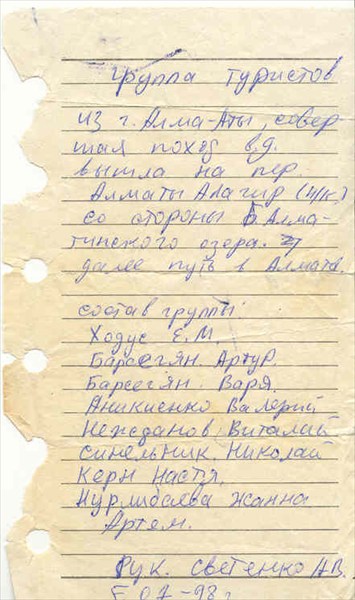 группа туристов
из г. Алма-Аты, совер-
шая поход в.д.
вышла на пер.
Алматы Алагир (н/к)
со стороны Б Алма-
тинского озера.
далее путь в Алмата.
состав группы:
Ходус Е.М.
Барсегян. Артур
Барсегян. Варя.
Аникиенко Валерий
Нежданов Виталий
Синельник. Николай
Керн Настя.
Нурлибаева Жанна
Артем.
Рук. Светенко АВ.
07-98г